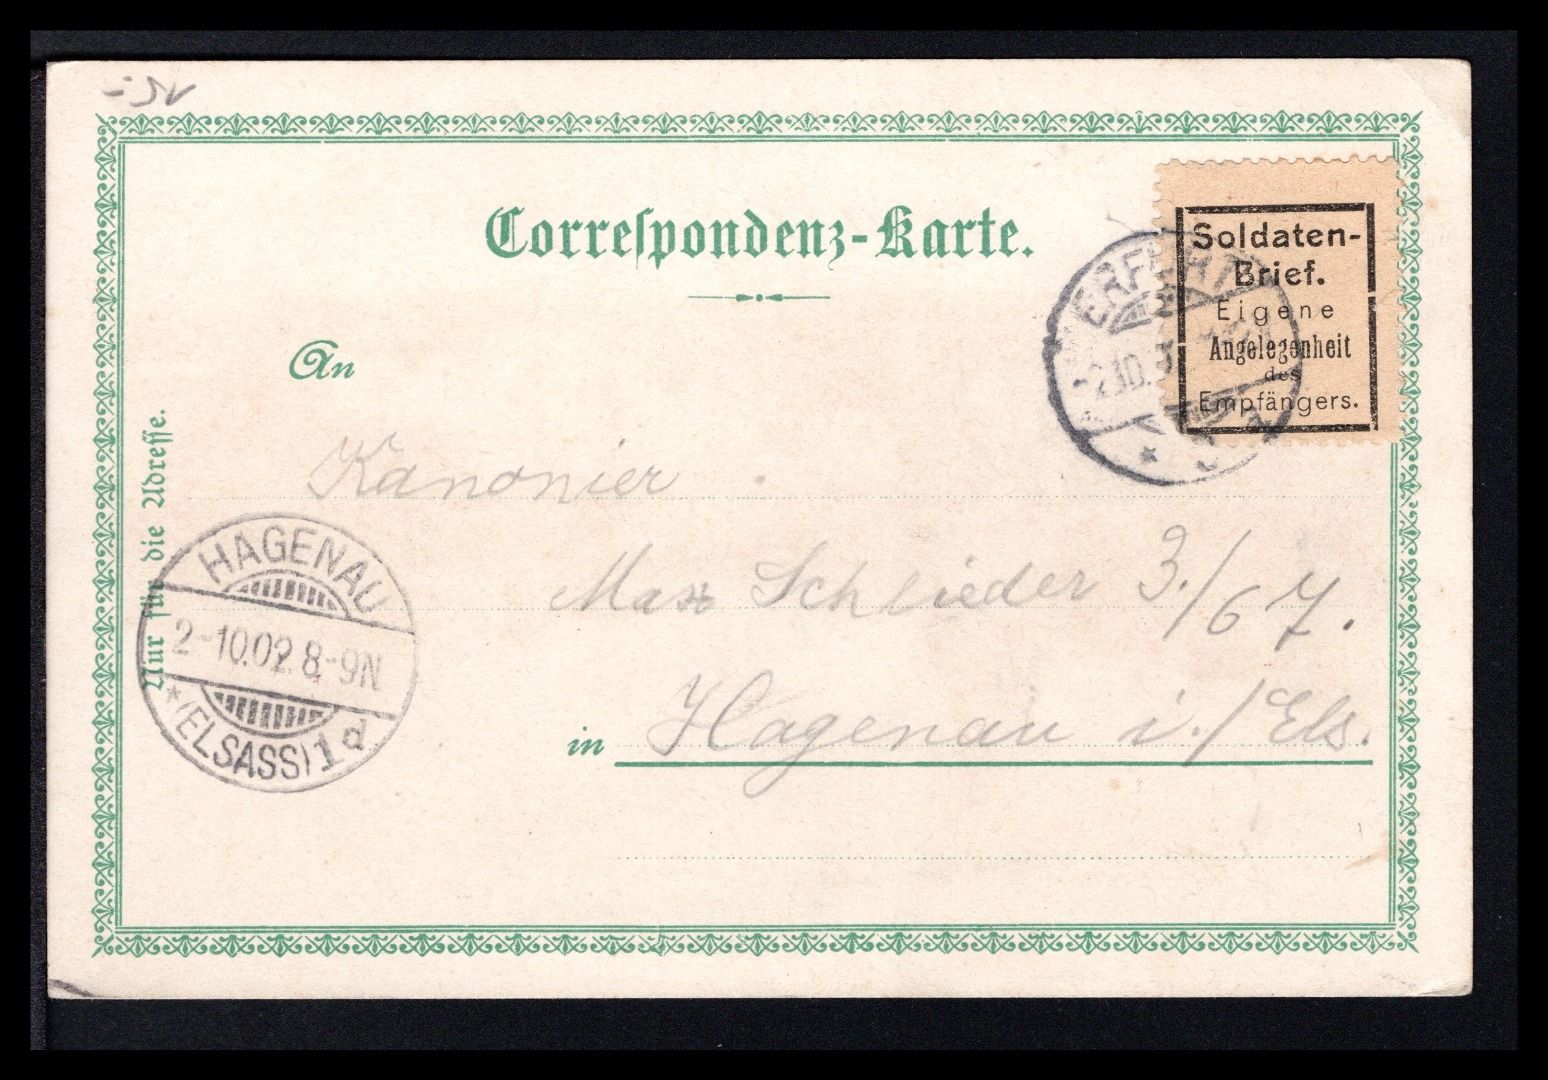 Correspondenz-Karte.
Soldaten-
Brief.
Eigene
Angelegenheit
des
Empfängers.
ERFURT
An
Kanonier
Max Schlieder 3./67.
in Hagenau i./Els.
Nur für die Adresse.
HAGENAU
2-10.02. 8-9N
* (ELSASS) 1 d